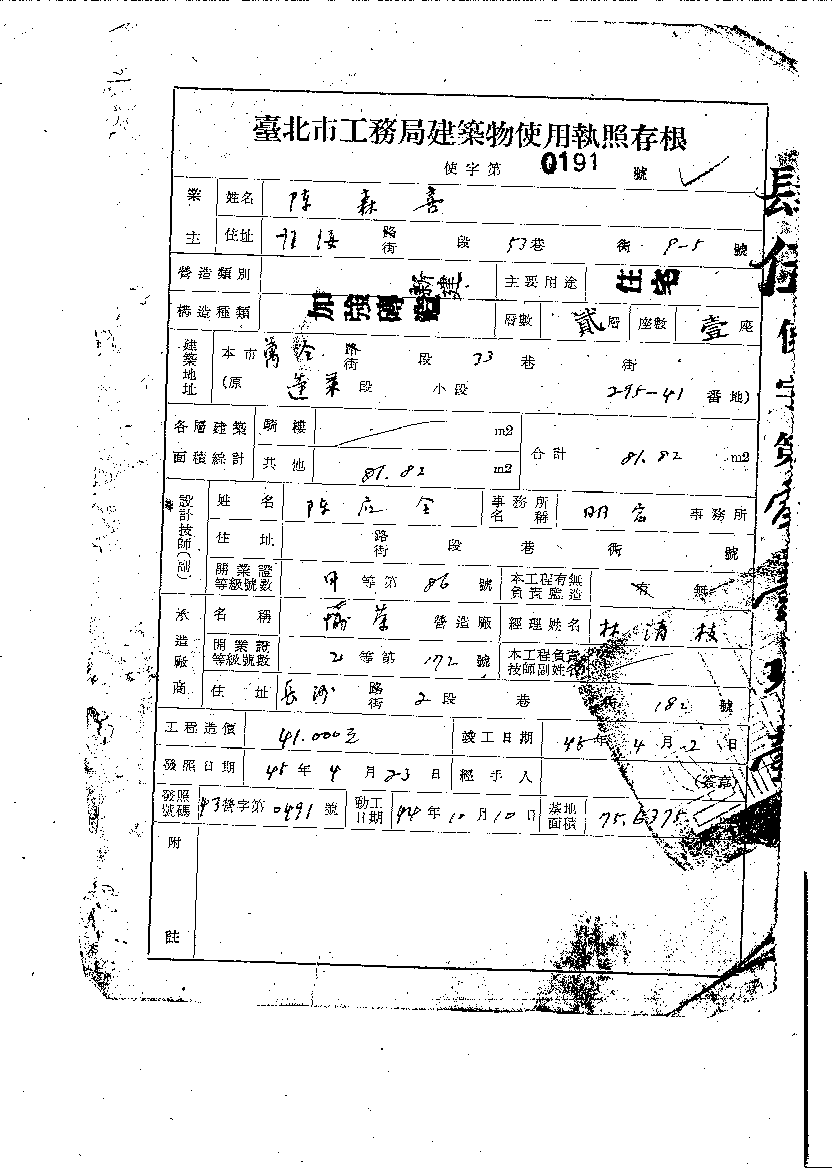 臺北市工務局建築物使用執照存根
使字第 0191 號
業主 姓名 陳森喜
住址 路街 段 53巷 衖 9-5 號
營造類別 新建 主要用途 住宅
構造種類 加強磚造 層數 貳層 座數 壹座
建築地址 本市萬全路街 段 33巷 衖
(原 蓬萊段 小段 295-41 番地)
各層建築面積總計 騎樓 m2 合計 81.82 m2
其他 81.82 m2
設計技師(副) 姓名 陳 全 事務所名稱 明 事務所
住址 路街 段 巷 衖 號
開業證等級號數 甲等第 86 號 本工程有無負責監造 有 無
承造廠商 名稱 榮 營造廠 經理姓名 林清枝
開業證等級號數 乙等第 172 號 本工程負責技師副姓名
住址 長沙路街 2段 巷 182 號
工程造價 41.000元 竣工日期 45年4月2日
發照日期 45年4月23日 經手人 (簽章)
發照號碼 43營字第0491號 動工日期 44年10月10日 基地面積 75.6375
附註